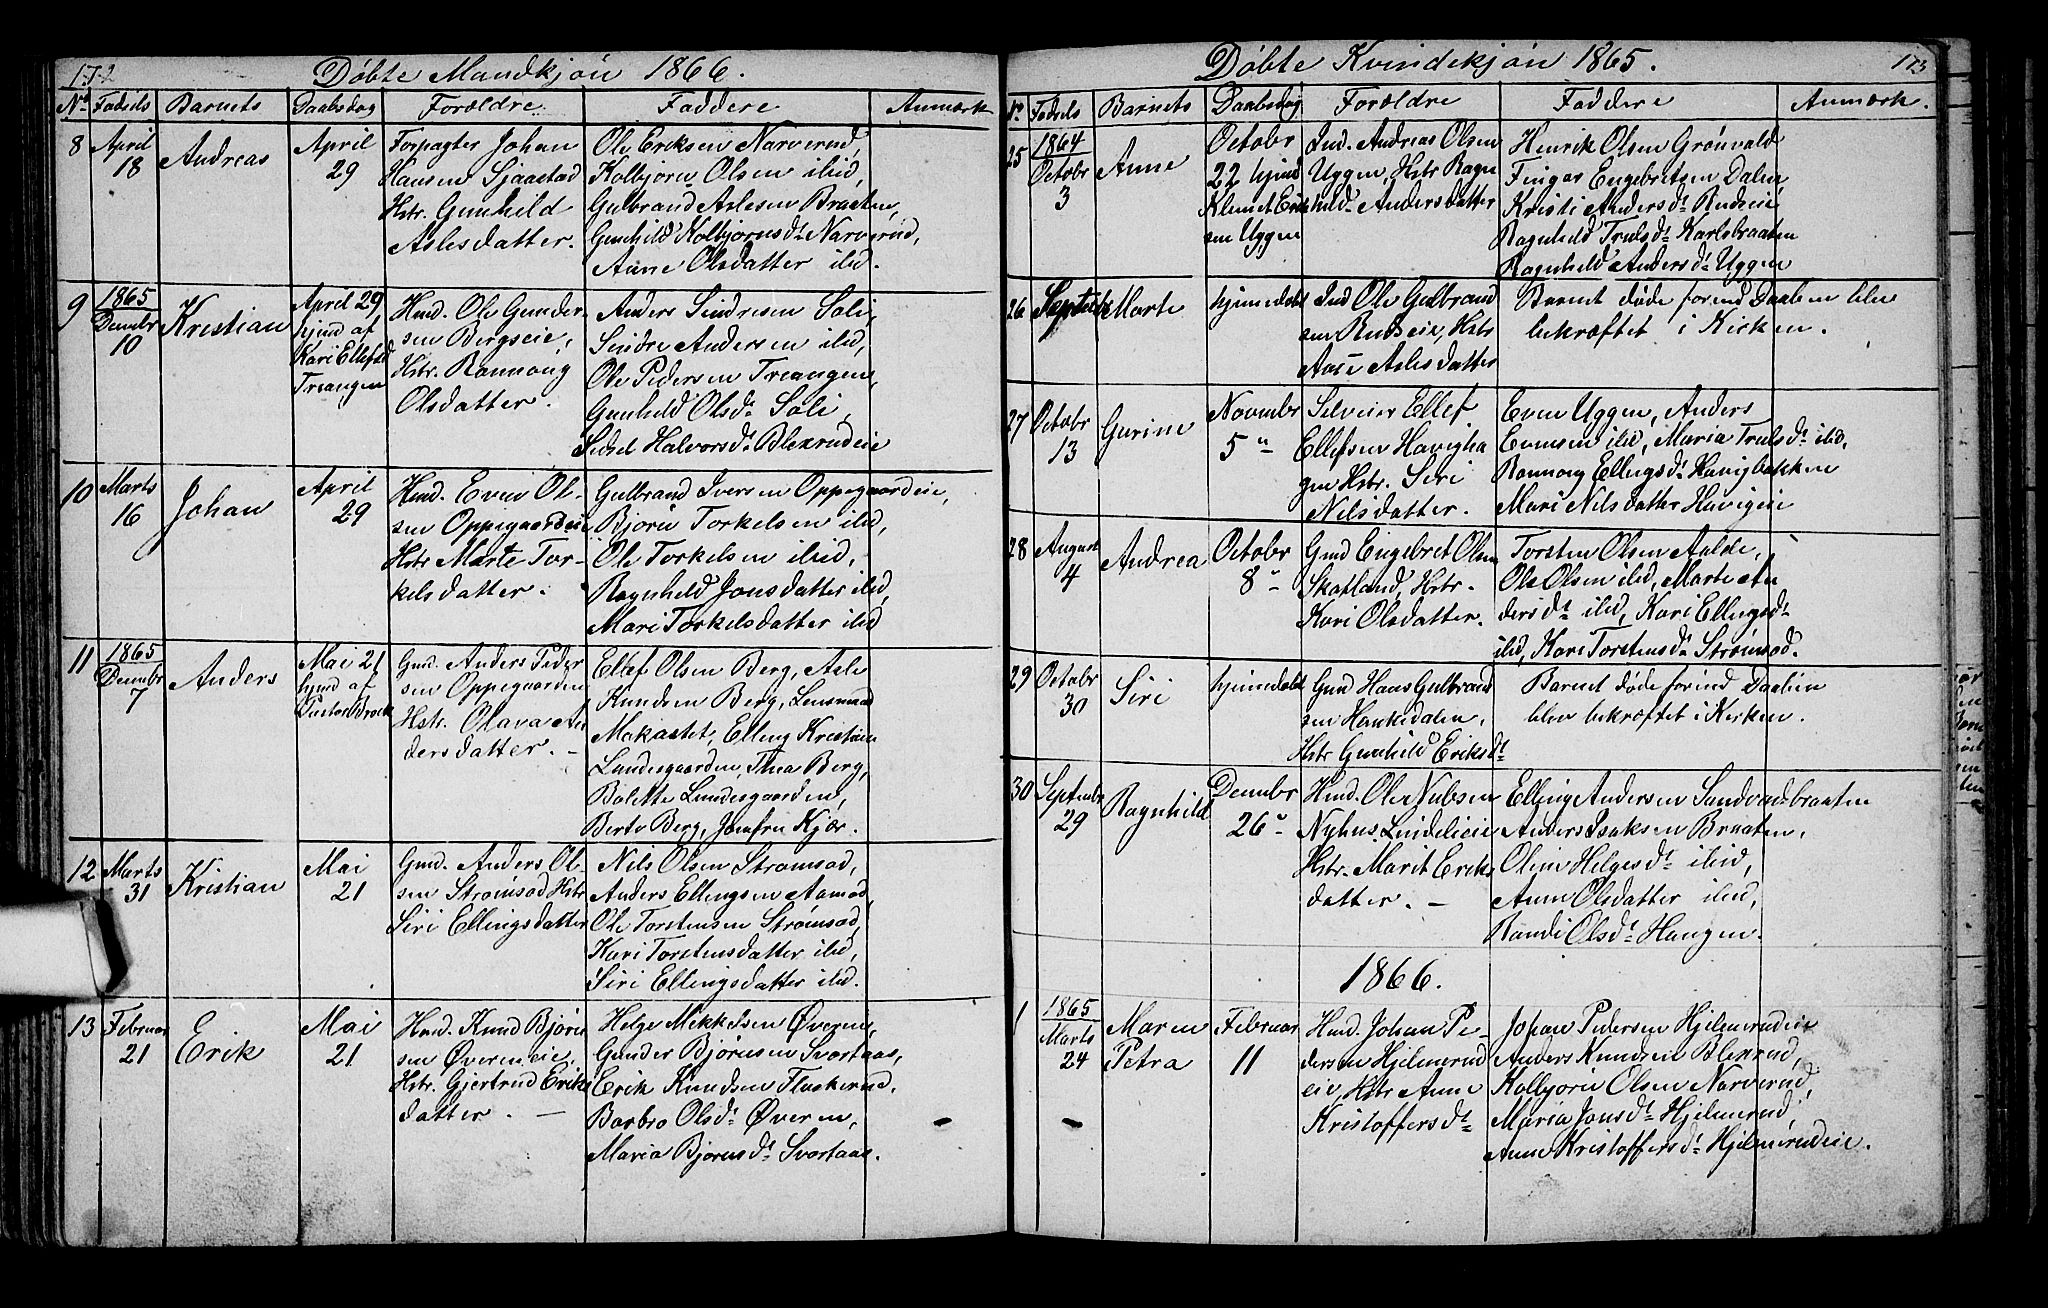 172
Döbte Mandkjön 1866.
No Födsels Barnets Daabsdag Forældre Faddere Anmærk
8 April 18 Andreas April 29
Forpagter Johan
Hansen Sjaastad
Hstr. Gunhild
Aslesdatter.
Ole Eriksen Narverud,
Kolbjörn Olsen ibid,
Gulbrand Aslesen Braaten,
Gunhild Kolbjörnsdr Narverud,
Anne Olsdatter ibid.
9 1865 Decembr 10 Kristian
April 29
hjmd af
Kari Ellefsd
Trcangen
Hmd. Ole Gunder-
sen Bergseie,
Hstr. Rannoug
Olsdatter.
Anders Sindresen Söli,
Sindre Andersen ibid,
Ole Pedersen Treangen,
Gunhild Olsdr Söli,
Sidsel Halvorsdr Blexrudeie
10 Marts 16 Johan April 29
Hmd. Even Ol-
sen Oppegaardeie
Hstr Marte Tor-
kelsdatter.
Gulbrand Iversen Oppegaardeie,
Björn Torkelsen ibid,
Ole Torkelsen ibid,
Ragnhild Jonsdatter ibid,
Mari Torkelsdatter ibid
11 1865 Decembr 7 Anders
Mai 21
hjmd af
Pastor Brock
Gmd. Anders Peder
sen Oppegaarden
Hstr. Olava An
dersdatter. –
Ellef Olsen Berg, Asle
Knudsen Berg, Lensmand
Makastet, Elling Kristian
Lundesgaarden, Thea Berg,
Bolette Lundesgaarden,
Berte Berg, Jomfru Kjær.
12 Marts 31 Kristian Mai 21
Gmd. Anders Ol-
sen Strömsöd Hstr
Siri Ellingsdatter
Nils Olsen Strömsöd,
Anders Ellingsen Aamöd,
Ole Torstensen Strömsöd,
Kari Torstensdatter ibid,
Siri Ellingsdatter ibid.
13 Februar 21 Erik Mai 21
Hmd. Knud Björn
sen Överneie,
Hstr. Gjertrud Eriks
datter. –
Helge Mikkelsen Överen,
Gunder Björnsen Svartaas,
Erik Knudsen Fluskerud,
Barbro Olsdr Överen,
Maria Björnsdr Svartaas.
173
Döbte Kvindekjön 1865.
No Födsels Barnets Daabsdag Forældre Faddere Anmærk.
25 1864 Octobr 3 Anne
Octobr
22 hjmd
Klemet Erik
sen Uggen
Ind. Andreas Olsen
Uggen, Hstr Ragn
hild Andersdatter
Henrik Olsen Grönvold
Fingar Engebretsen Dalen
Kristi Andersdr Rudseie,
Ragnhild Trulsdr Karlsbraaten
Ragnhild Andersdr Uggen
26 Septembr Marte hjemmedøbt
Ind Ole Gulbrand
sen Rudseie, Hstr
Aase Aslesdatter
Barnet döde forind Daaben blev
bekræftet i Kirken.
27 Octobr 13 Gurine Novembr 5
Selveier Ellef
Ellefsen Havigha
gen Hstr. Siri
Nilsdatter.
Even Uggen, Anders
Evensen ibid, Maria Trulsdr ibid,
Rannoug Ellingsdr Havigbakken
Mari Nilsdatter Havigeie
28 August 4 Andrea Octobr 8
Gmd Engebret Olsen
Skatland, Hstr.
Kari Olsdatter.
Torsten Olsen Aalde,
Ole Olsen ibid, Marte An
dersdr ibid, Kari Ellingsdr
ibid, Kari Torstensdr Strömsöd.
29 Octobr 30 Siri hjemmedøbt
Gmd Hans Gulbrand
sen Haukedalen,
Hstr Gunhild Eriksdr
Barnet döde forind Daaben
blev bekræftet i Kirken.
30 Septembr 29 Ragnhild Decembr 26
Hmd. Ole Nubsen
Nyhus Lindelieie
Hstr. Marit Eriks
datter. –
Elling Andersen Sandvandsbraaten
Anders Isaksen Braaten,
Olin Helgesdr ibid,
Anne Olsdatter ibid,
Randi Olsdr Haugen.
1866.
1 1865 Marts 24 Maren Petra Februar 11
Hmd. Johan Pe-
dersen Hjelmerud
eie, Hstr Anne
Kristoffersdr
Johan Pedersen Hjelmerudeie
Anders Knudsen Blexrud,
Kolbjörn Olsen Narverud,
Maria Jonsdr Hjelmerud,
Anne Kristoffersdr Hjelmerudeie.